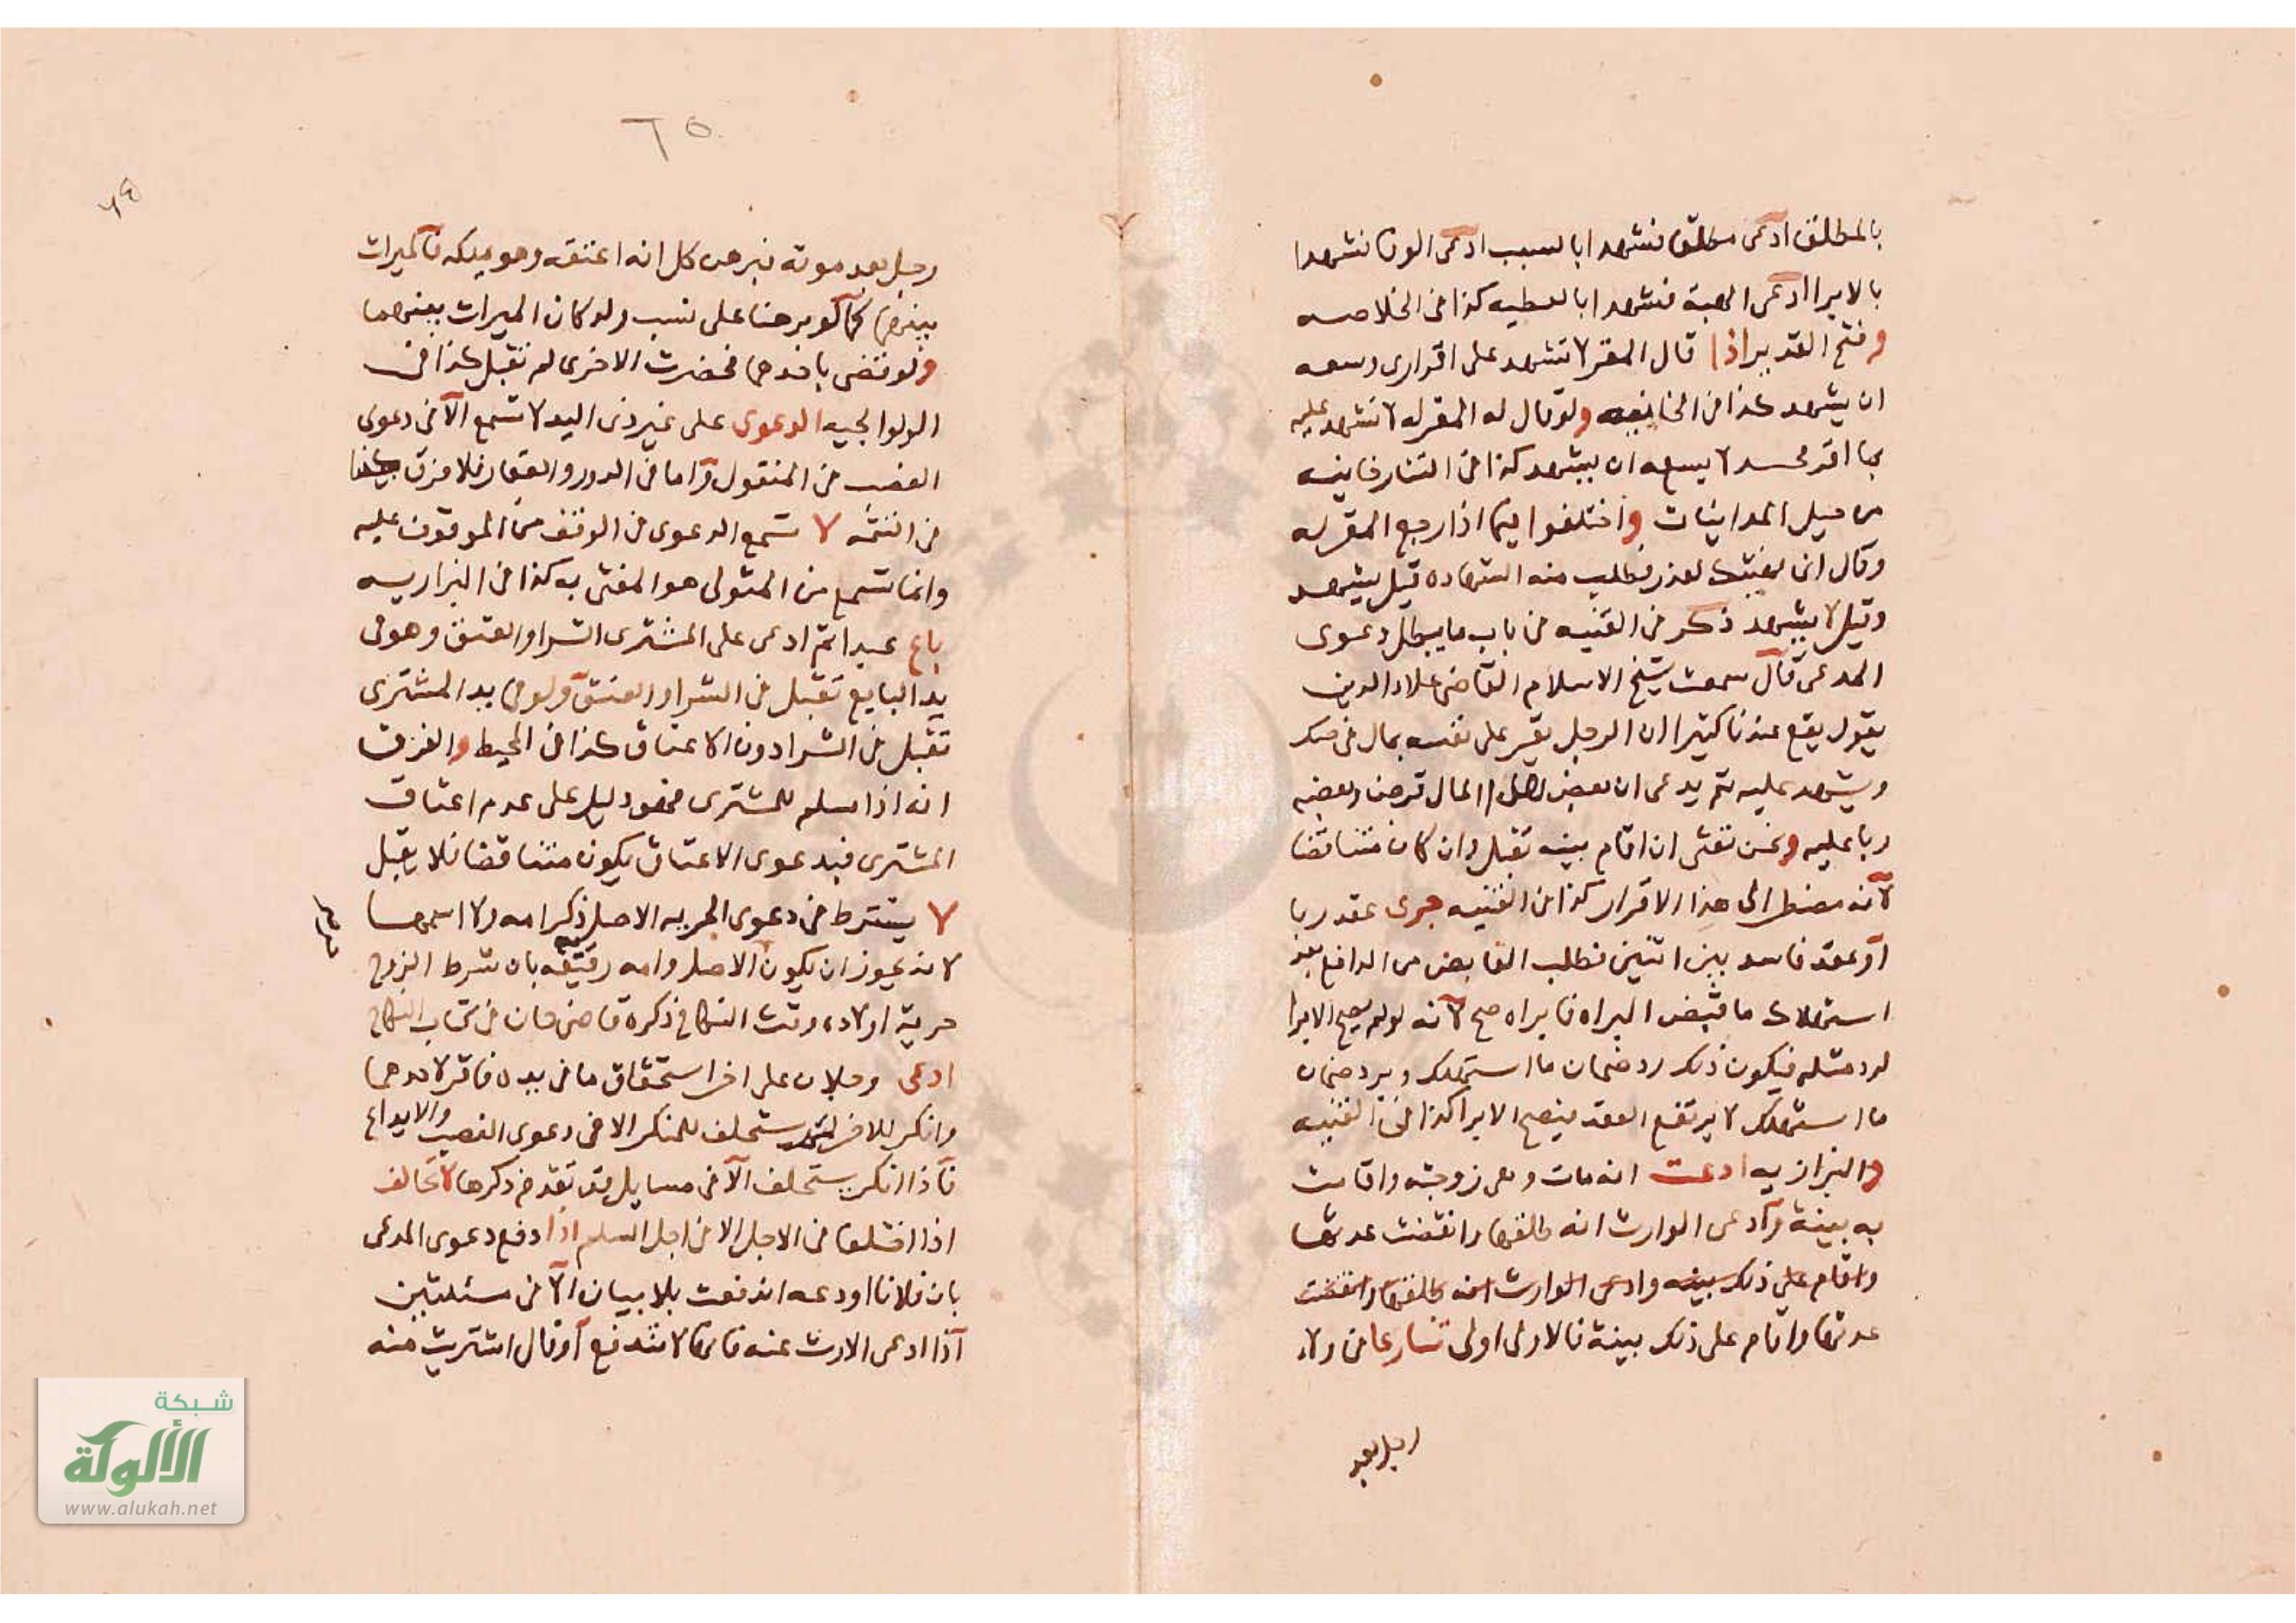 بالمطلق ادعى مطلقا فشهدا بالسبب ادعى الوفا فشهدا
بالابرا ادعى الهبة فشهدا بالعطيه كذا فى الخلاصه
وفتح القدير اذا قال المقر لا تشهد على اقرارى وسعه
ان يشهد كذا فى الخانيه ولو قال له المقر له لا تشهد عليه
بما اقر لا يسعه ان يشهد كذا فى التتارخانيه
من حيل المداينات واختلفوا فيما اذا رجع المقر له
وقال انى نهيتك لعذر فطلب منه الشهاده قيل يشهد
وقيل لا يشهد ذكر فى القنيه فى باب ما يبطل دعوى
المدعى قال سمعت شيخ الاسلام القاضى علاء الدين
يقول يقع عندنا كثيرا ان الرجل يقر على نفسه بمال فى صك
ويشهد عليه ثم يدعى ان بعض هذا المال قرض وبعضه
ربا عليه ونحن نفتى ان اقام بينه تقبل وان كان متناقضا
لانه مضطر الى هذا الاقرار كذا فى القنيه جرى عقد ربا
او عقد فاسد بين اثنين فطلب القابض من الدافع بعد
استهلاك ما قبض البراه فابراه صح لانه لو لم يصح الابرا
لرد مثله فيكون ذلك رد ضمان ما استهلك وبرد ضمان
ما استهلك لا يرتفع العقد فيصح الابرا كذا فى القنيه
والبزازيه ادعت انه مات وهى زوجته واقامت
به بينة وادعى الوارث انه طلقها وانقضت عدتها
واقام على ذلك بينه وادعى الوارث انه طلقها وانقضت
عدتها واقام على ذلك بينة فالاولى اولى تنازعا فى ولاء
رجل بعد
٦٥
رجل بعد موته فبرهن كل انه اعتقه وهو يملكه فالميراث
بينهما كما لو برهنا على نسب ولد كان الميراث بينهما
ولو قضى باحدهما فحضرت الاخرى لم تقبل كذا فى
الولوالجيه الدعوى على غير ذى اليد لا تسمع الا فى دعوى
الغصب فى المنقول واما فى الدور والعقار فلا فرق
فى اليتيمه لا تسمع الدعوى فى الوقف من الموقوف عليه
وانما تسمع من المتولى هو المفتى به كذا فى البزازيه
باع عبدا ثم ادعى على المشترى الشرا والعتق وهو فى
يد البايع تقبل فى الشرا والعتق ولو فى يد المشترى
تقبل فى الشرا دون الاعتاق كذا فى المحيط والفرق
انه اذا سلم للمشترى فهو دليل على عدم اعتاق
المشترى فبدعوى الاعتاق يكون متناقضا فلا يقبل
لا يشترط فى دعوى الحريه الاصل ذكر امه ولا اسمها
لانه يجوز ان يكون الاصل وامه رقيقه بان شرط الزوج
حرية اولاده وقت النكاح ذكره قاضى خان فى كتاب النكاح
ادعى رجلان على اخر استحقاق ما فى يده فاقر لاحدهما
وانكر للاخر يستحلف للمنكر الا فى دعوى الغصب والايداع
فاذا انكر يستحلف الا فى مسايل قد تقدم ذكرها لا تحالف
اذا اختلفا فى الاجل الا فى اجل السلم اذا دفع دعوى المدعى
بان فلانا اودعه اندفعت بلا بيان الا فى مسئلتين
اذا ادعى الارث عنه فانها لا تندفع او قال اشتريت منه
شبكة
الألوكة
www.alukah.net